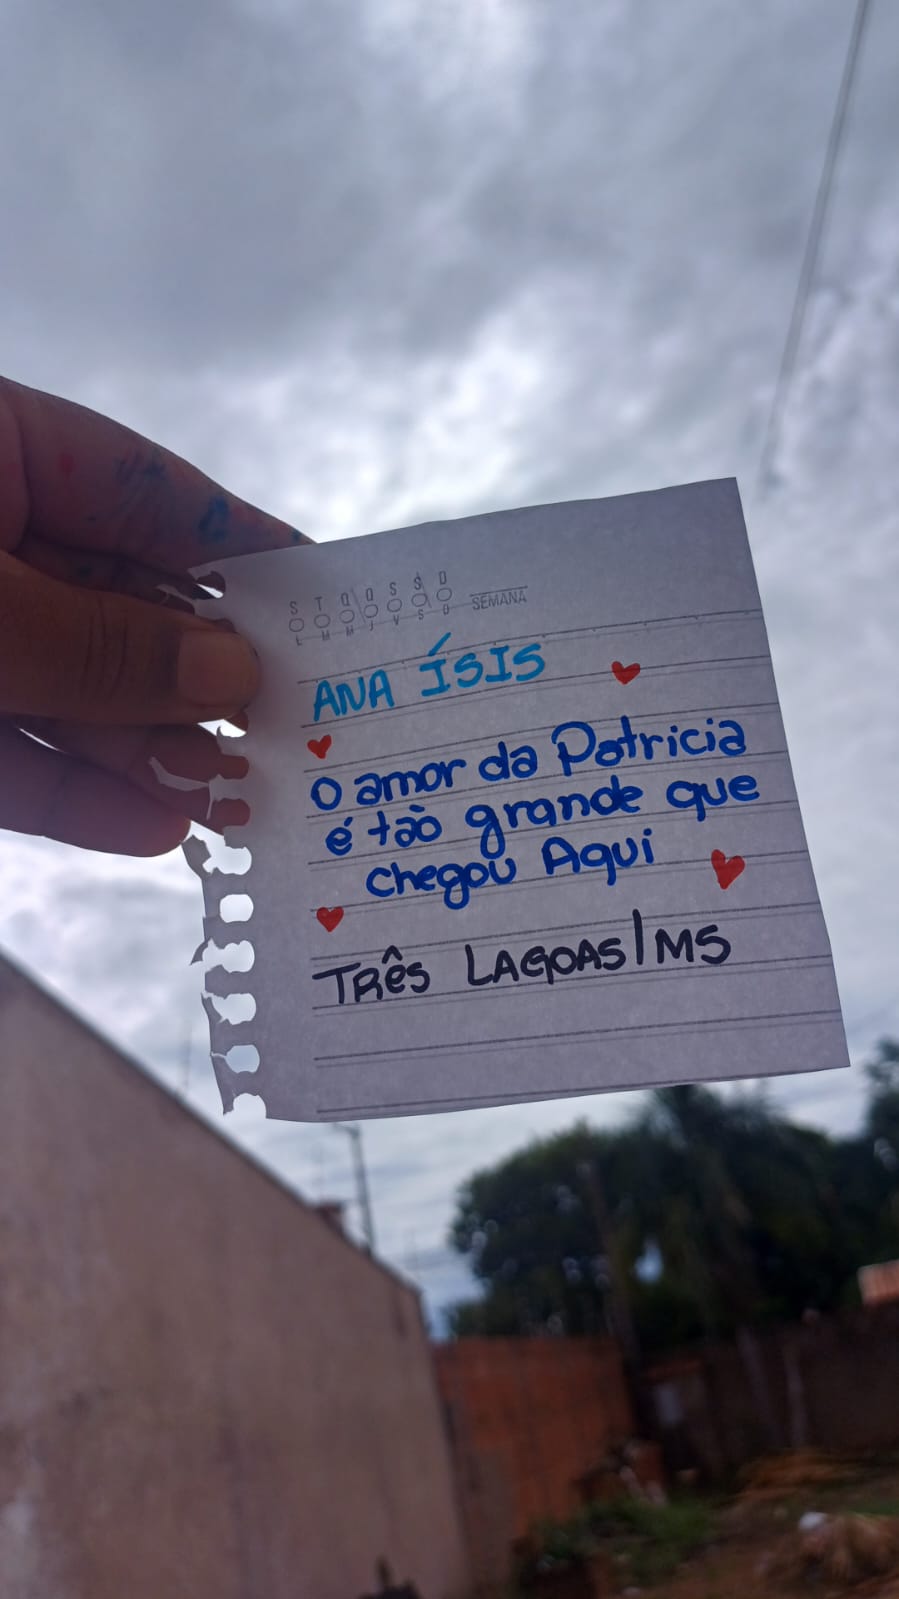 S T Q Q S S D
L M M J V S D
SEMANA
ANA ÍSIS
O amor da Patricia
é tão grande que
chegou Aqui
TRÊS LAGOAS/MS